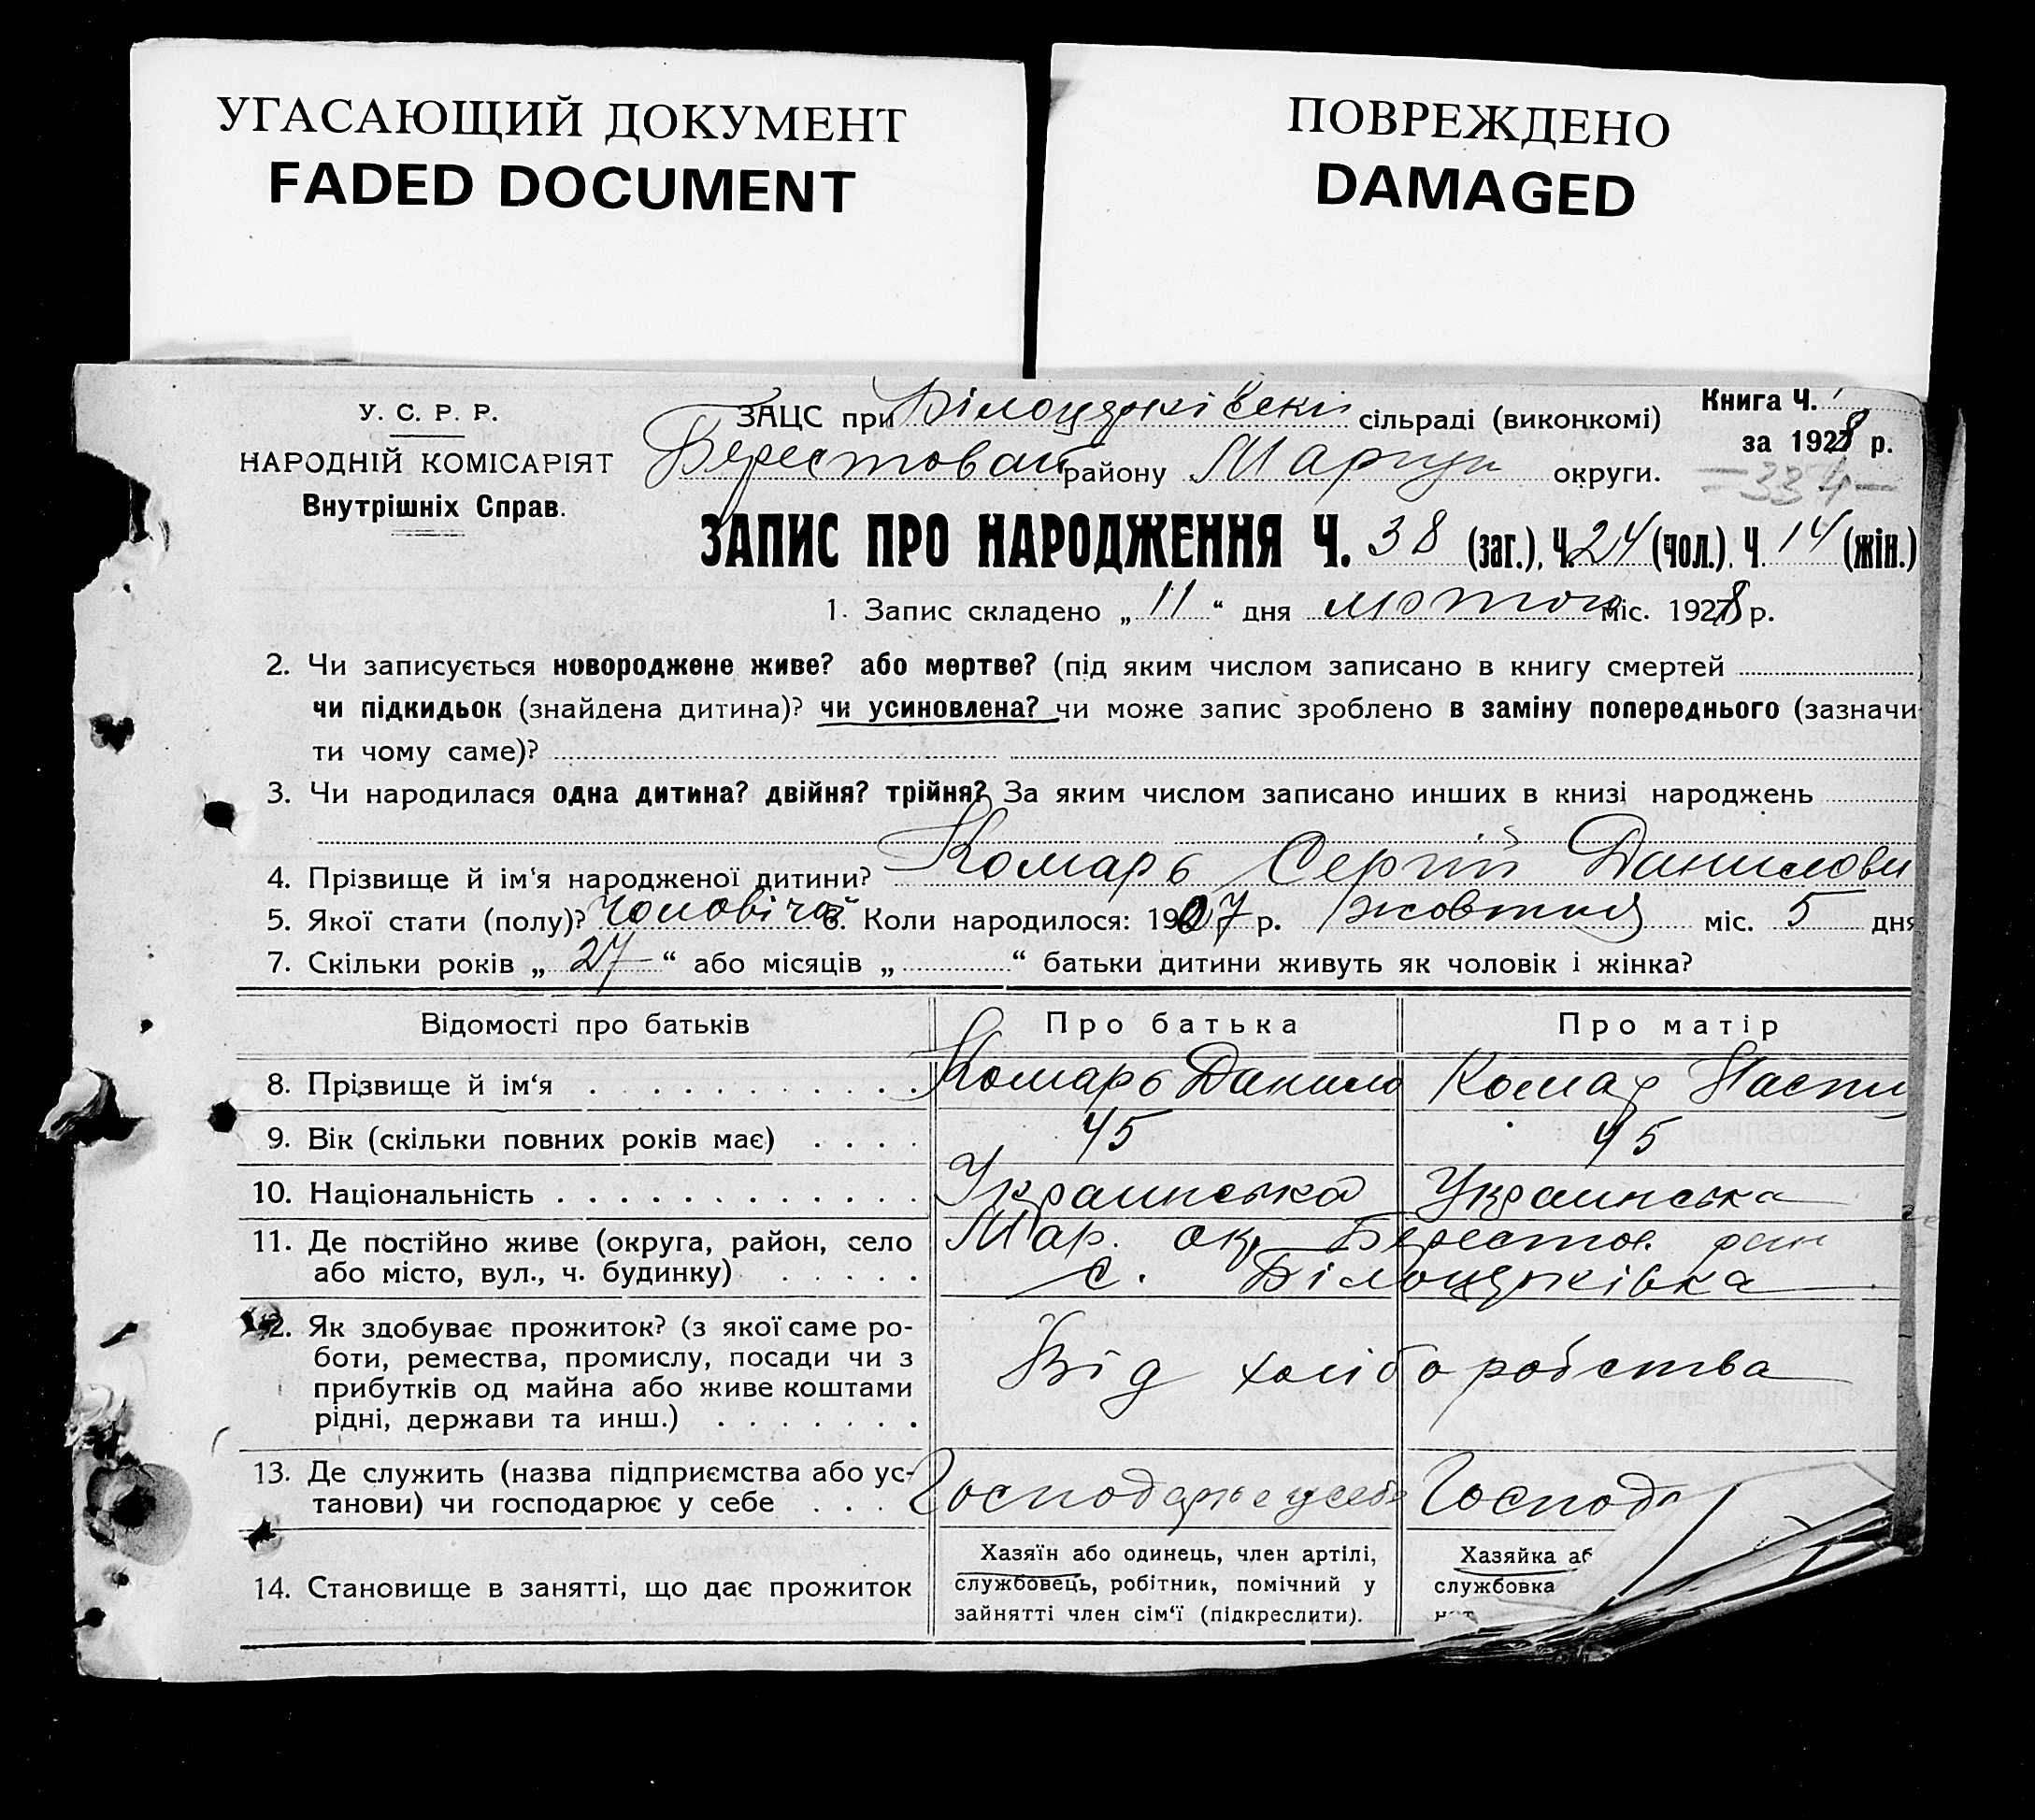 УГАСАЮЩИЙ ДОКУМЕНТ
FADED DOCUMENT
ПОВРЕЖДЕНО
DAMAGED
У. С. Р. Р.
НАРОДНІЙ КОМІСАРІЯТ
Внутрішніх Справ.
ЗАЦС при Білоцерківскі сільраді (виконкомі)
Берестован району Маріуп округи.
Книга Ч.
за 1928 р.
-334-
ЗАПИС ПРО НАРОДЖЕННЯ Ч. 38 (заг.), Ч. 24 (чол.). Ч. 14 (жін.)
1. Запис складено „ 11 “ дня лютого міс. 1928 р.
2. Чи записується новороджене живе? або мертве? (під яким числом записано в книгу смертей )
чи підкидьок (знайдена дитина)? чи усиновлена? чи може запис зроблено в заміну попереднього (зазначи-
ти чому саме)?
3. Чи народилася одна дитина? двійня? трійня? За яким числом записано инших в книзі народжень
4. Прізвище й ім'я народженої дитини? Комарь Сергій Данилови
5. Якої стати (полу)? чоловічої 6. Коли народилося: 1907 р. жовтня міс. 5 дня
7. Скільки років „ 27 “ або місяців „ “ батьки дитини живуть як чоловік і жінка?
Відомості про батьків Про батька Про матір
8. Прізвище й ім‘я Комарь Данило Комар Насти
9. Вік (скільки повних років має) 45 45
10. Національність Украинська Украинська
11. Де постійно живе (округа, район, село Мар. окр Берестов. рай
або місто, вул., ч. будинку) с. Білоцерківка
12. Як здобуває прожиток? (з якої саме ро-
боти, ремества, промислу, посади чи з Від хлібо робства
прибутків од майна або живе коштами
рідні, держави та инш.)
13. Де служить (назва підприємства або ус-
танови) чи господарює у себе Господарює у себе Господ
14. Становище в занятті, що дає прожиток
Хазяїн або одинець, член артілі,
службовець, робітник, помічний у
зайнятті член сім‘ї (підкреслити).
Хазяйка аб
службовка